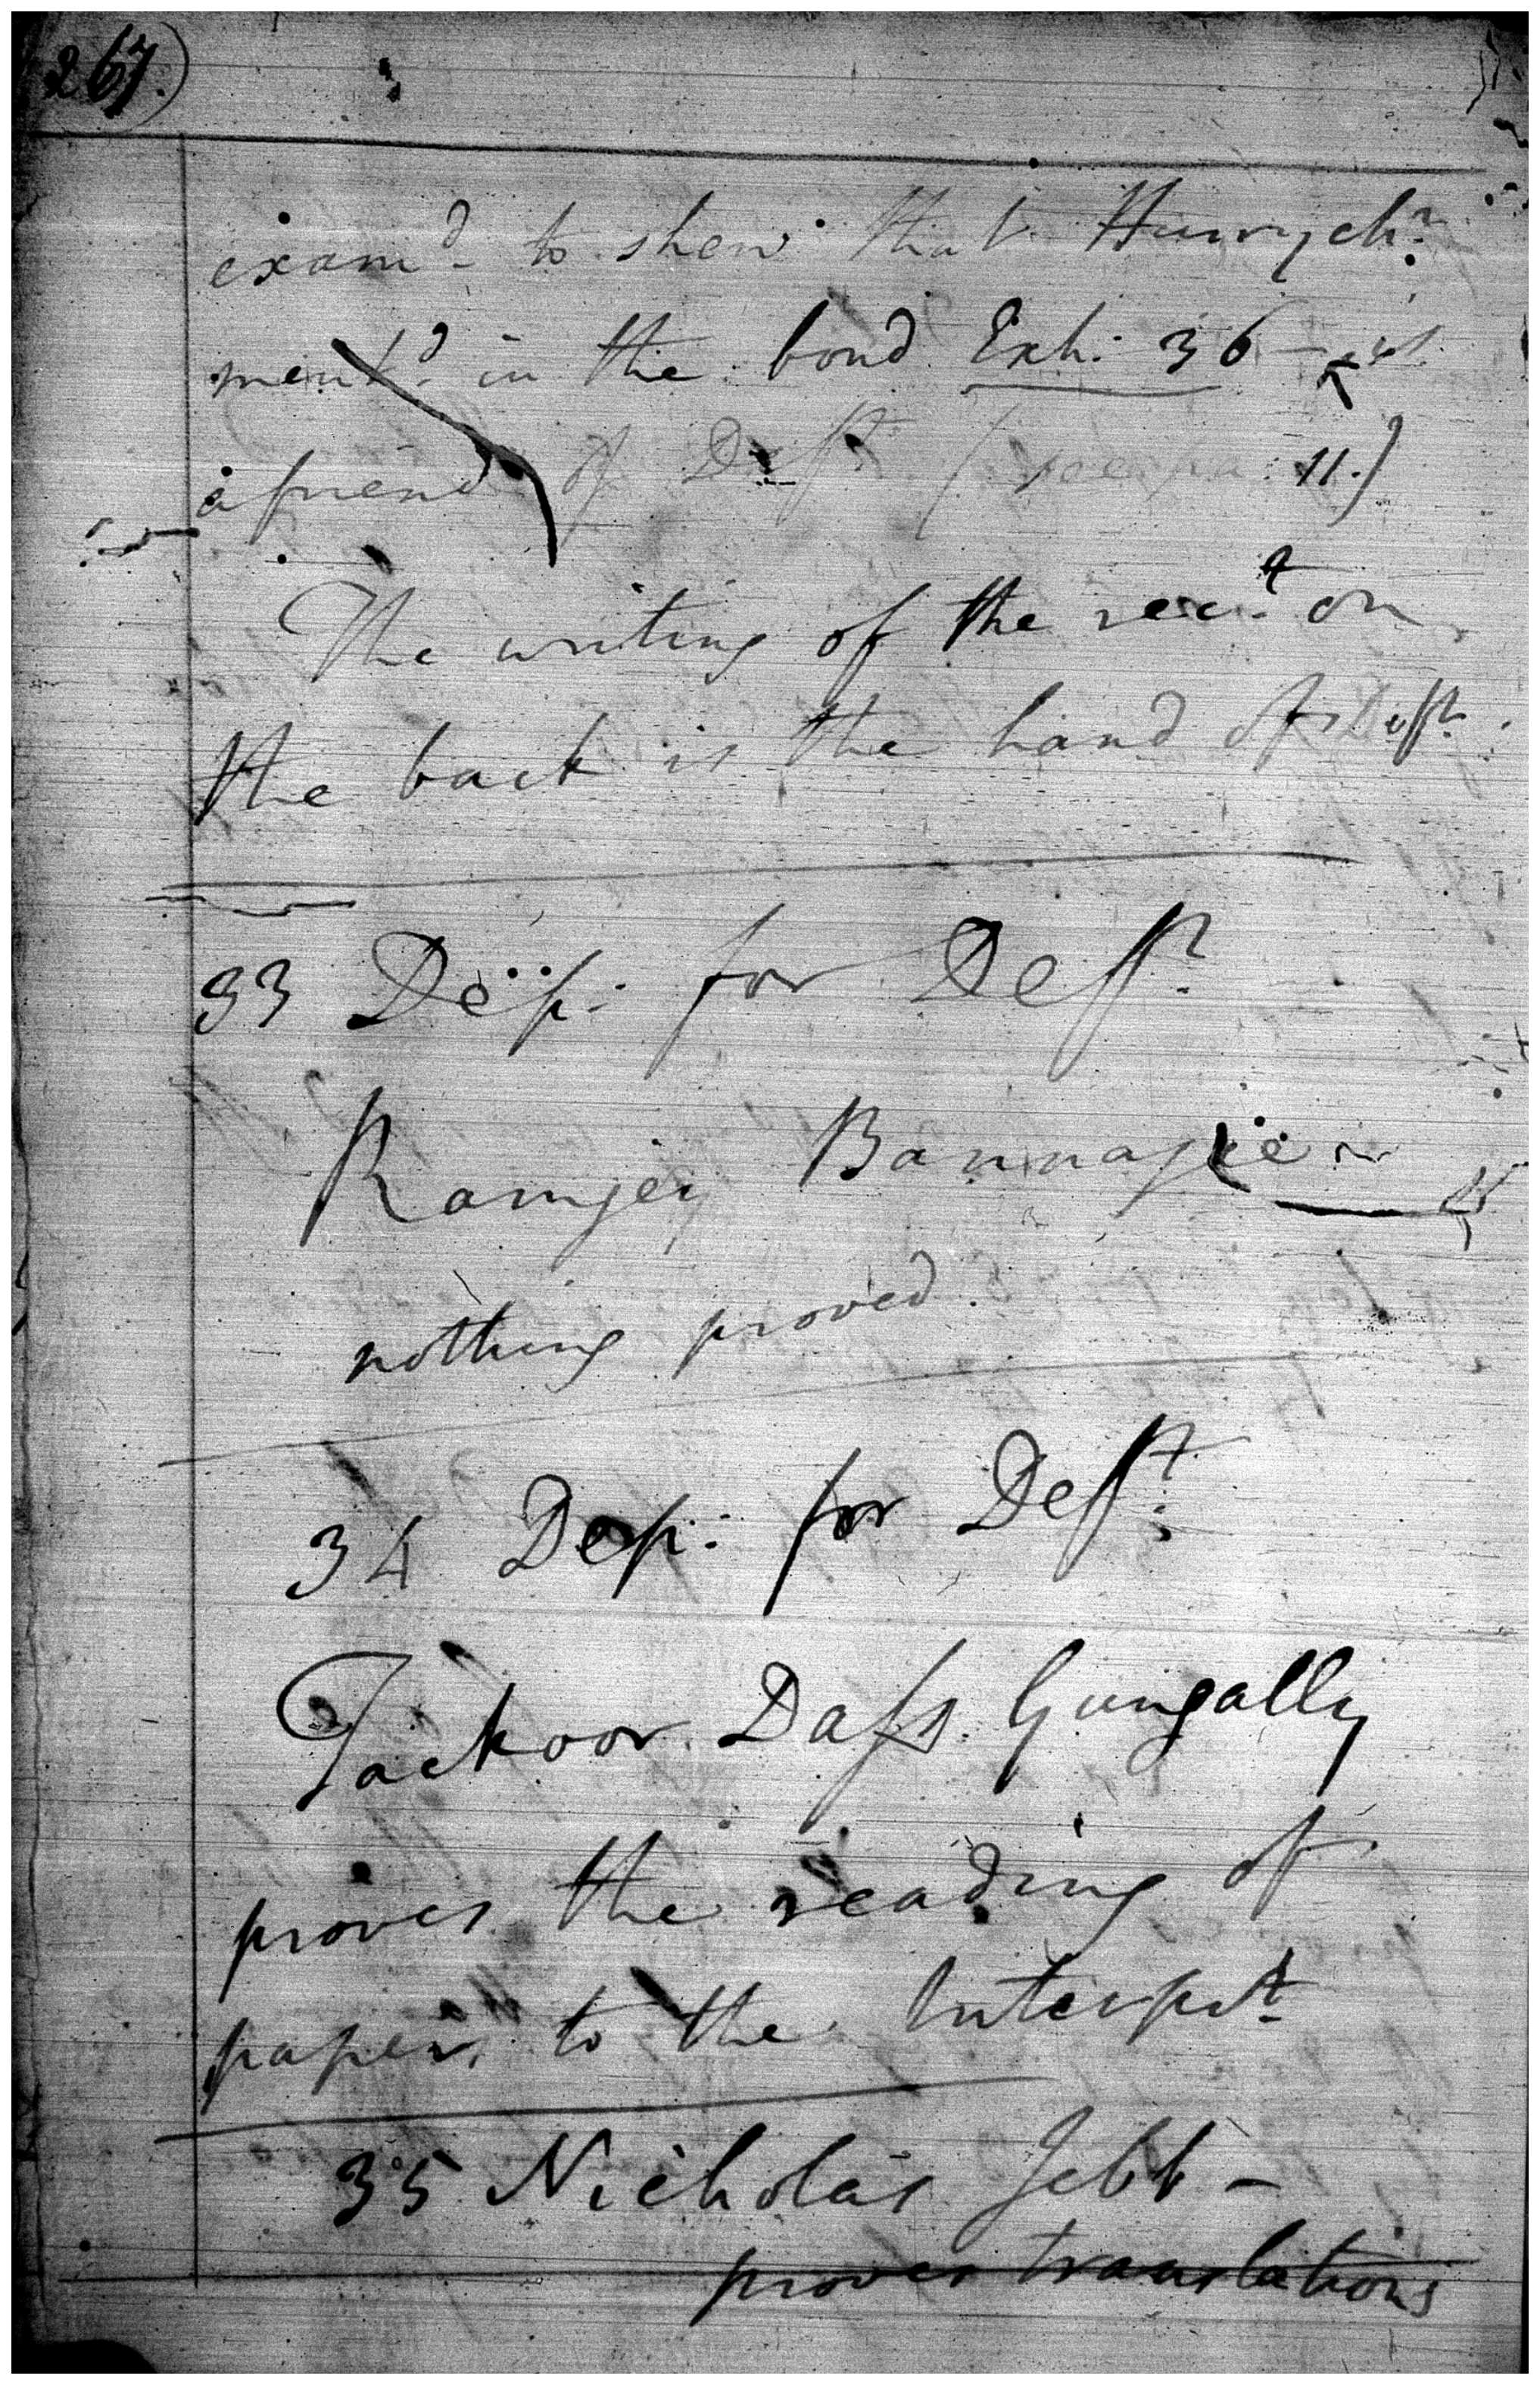 267.)
examd. to shew that Hurrychr.
mentd. in the bond Exh: 36 - is
a friend of Deft. (see pa: 11.)
The writing of the rect. on
the back is the hand of Deft.
33 Dep: for Deft.
Ramjey Bannajee
nothing proved.
34 Dep: for Deft.
Tackoor Dass Gungally
proves the reading of
papers to the Interpt.
35 Nicholas Jebb -
proves translations